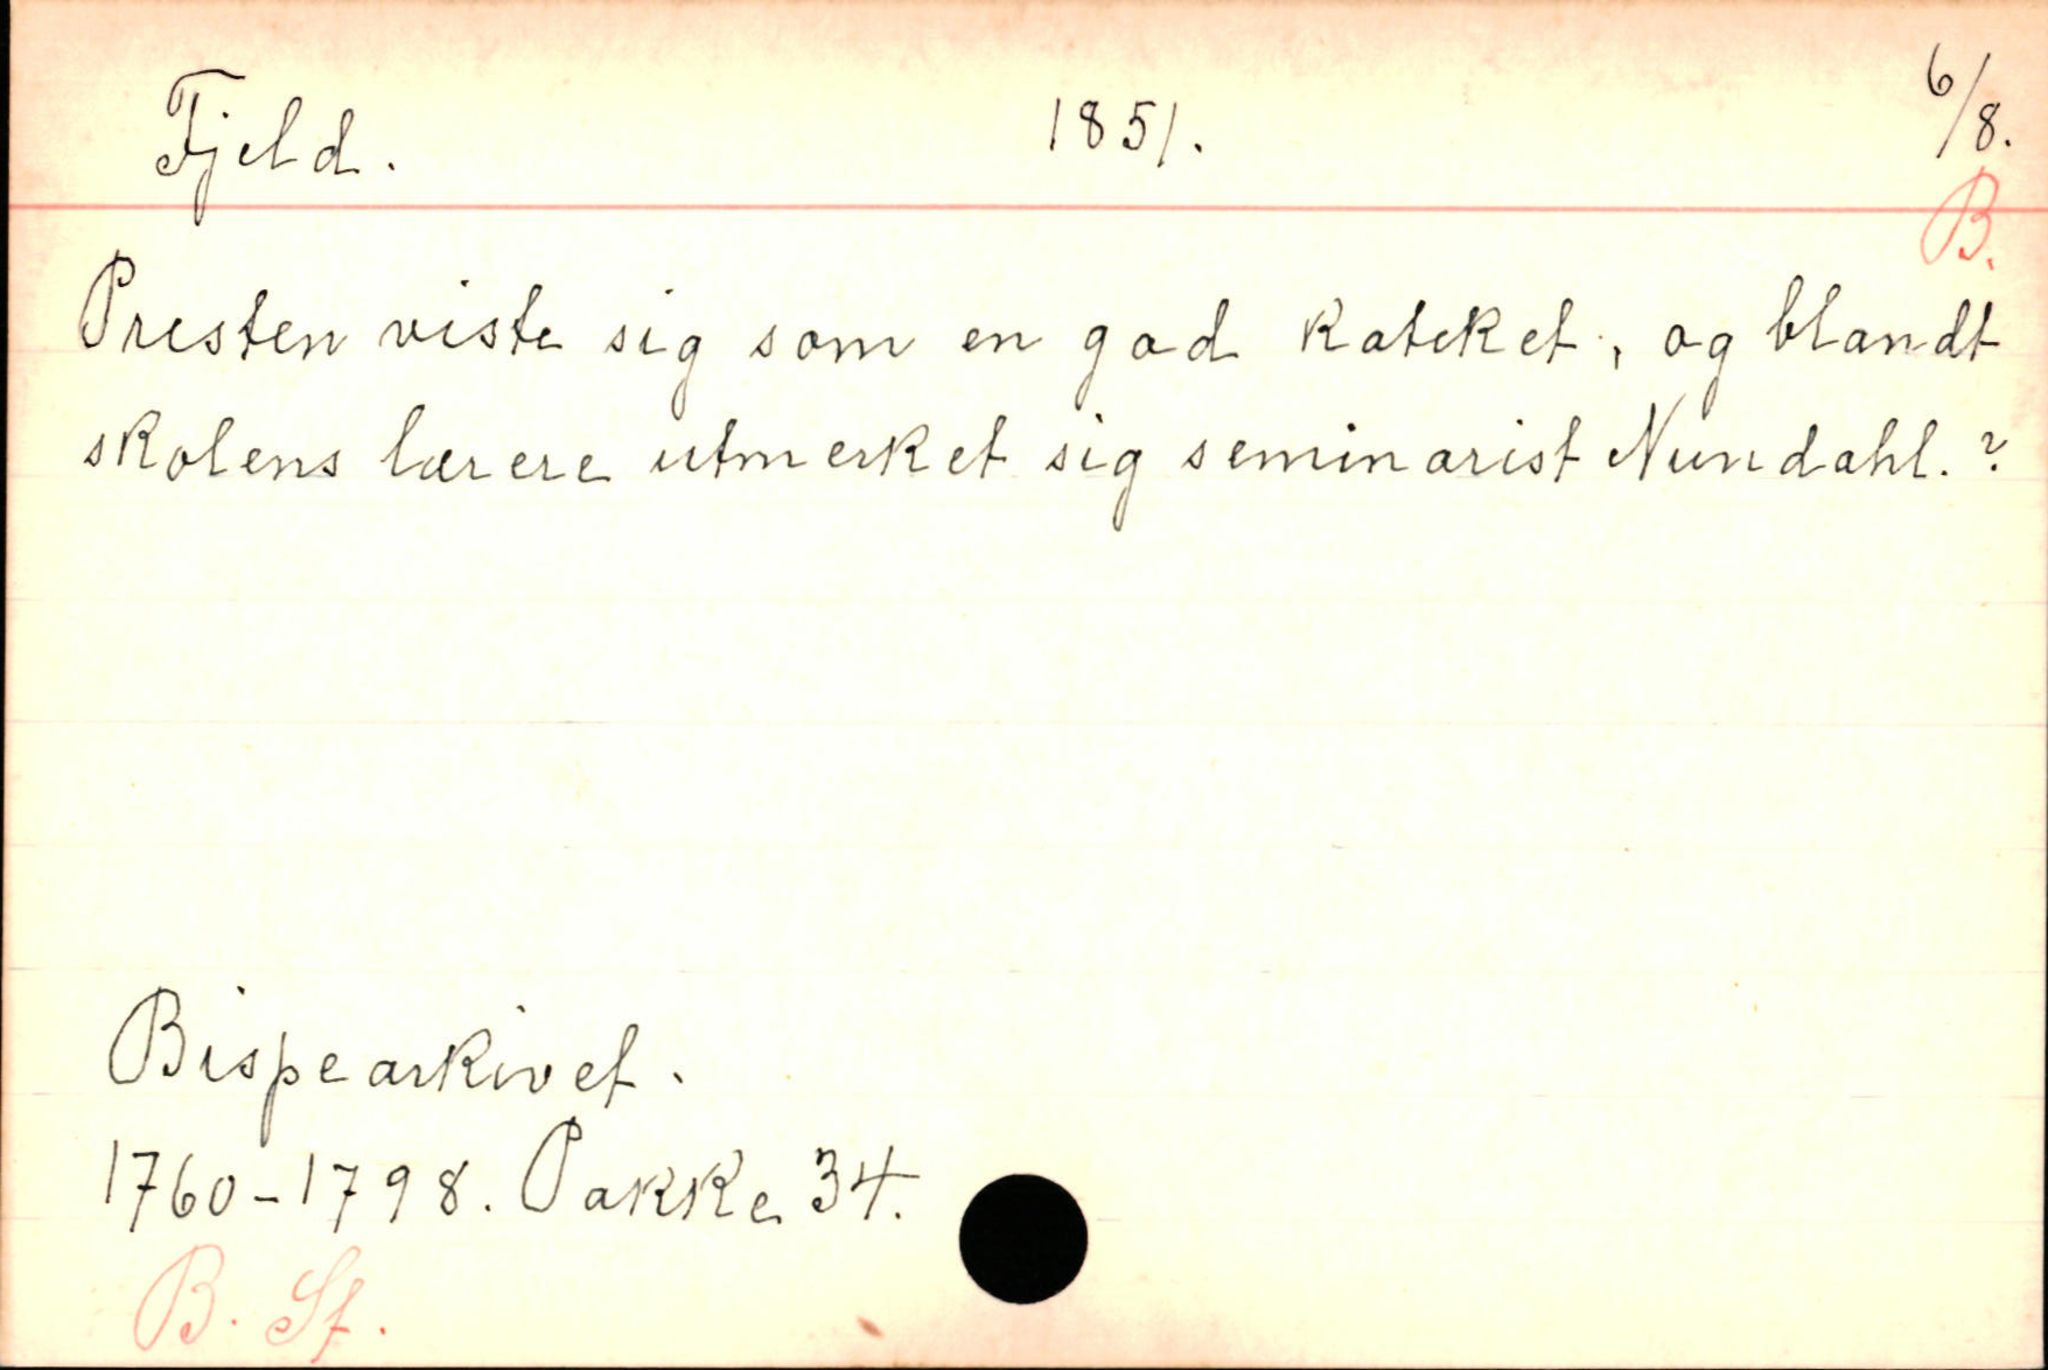 Fjeld. 1851. 6/8.
B.
Presten viste sig som en god kateket, og blandt
skolens lærere utmerket sig seminarist Nundahl.?
Bispearkivet.
1760-1798. Pakke 34.
B. Sf.